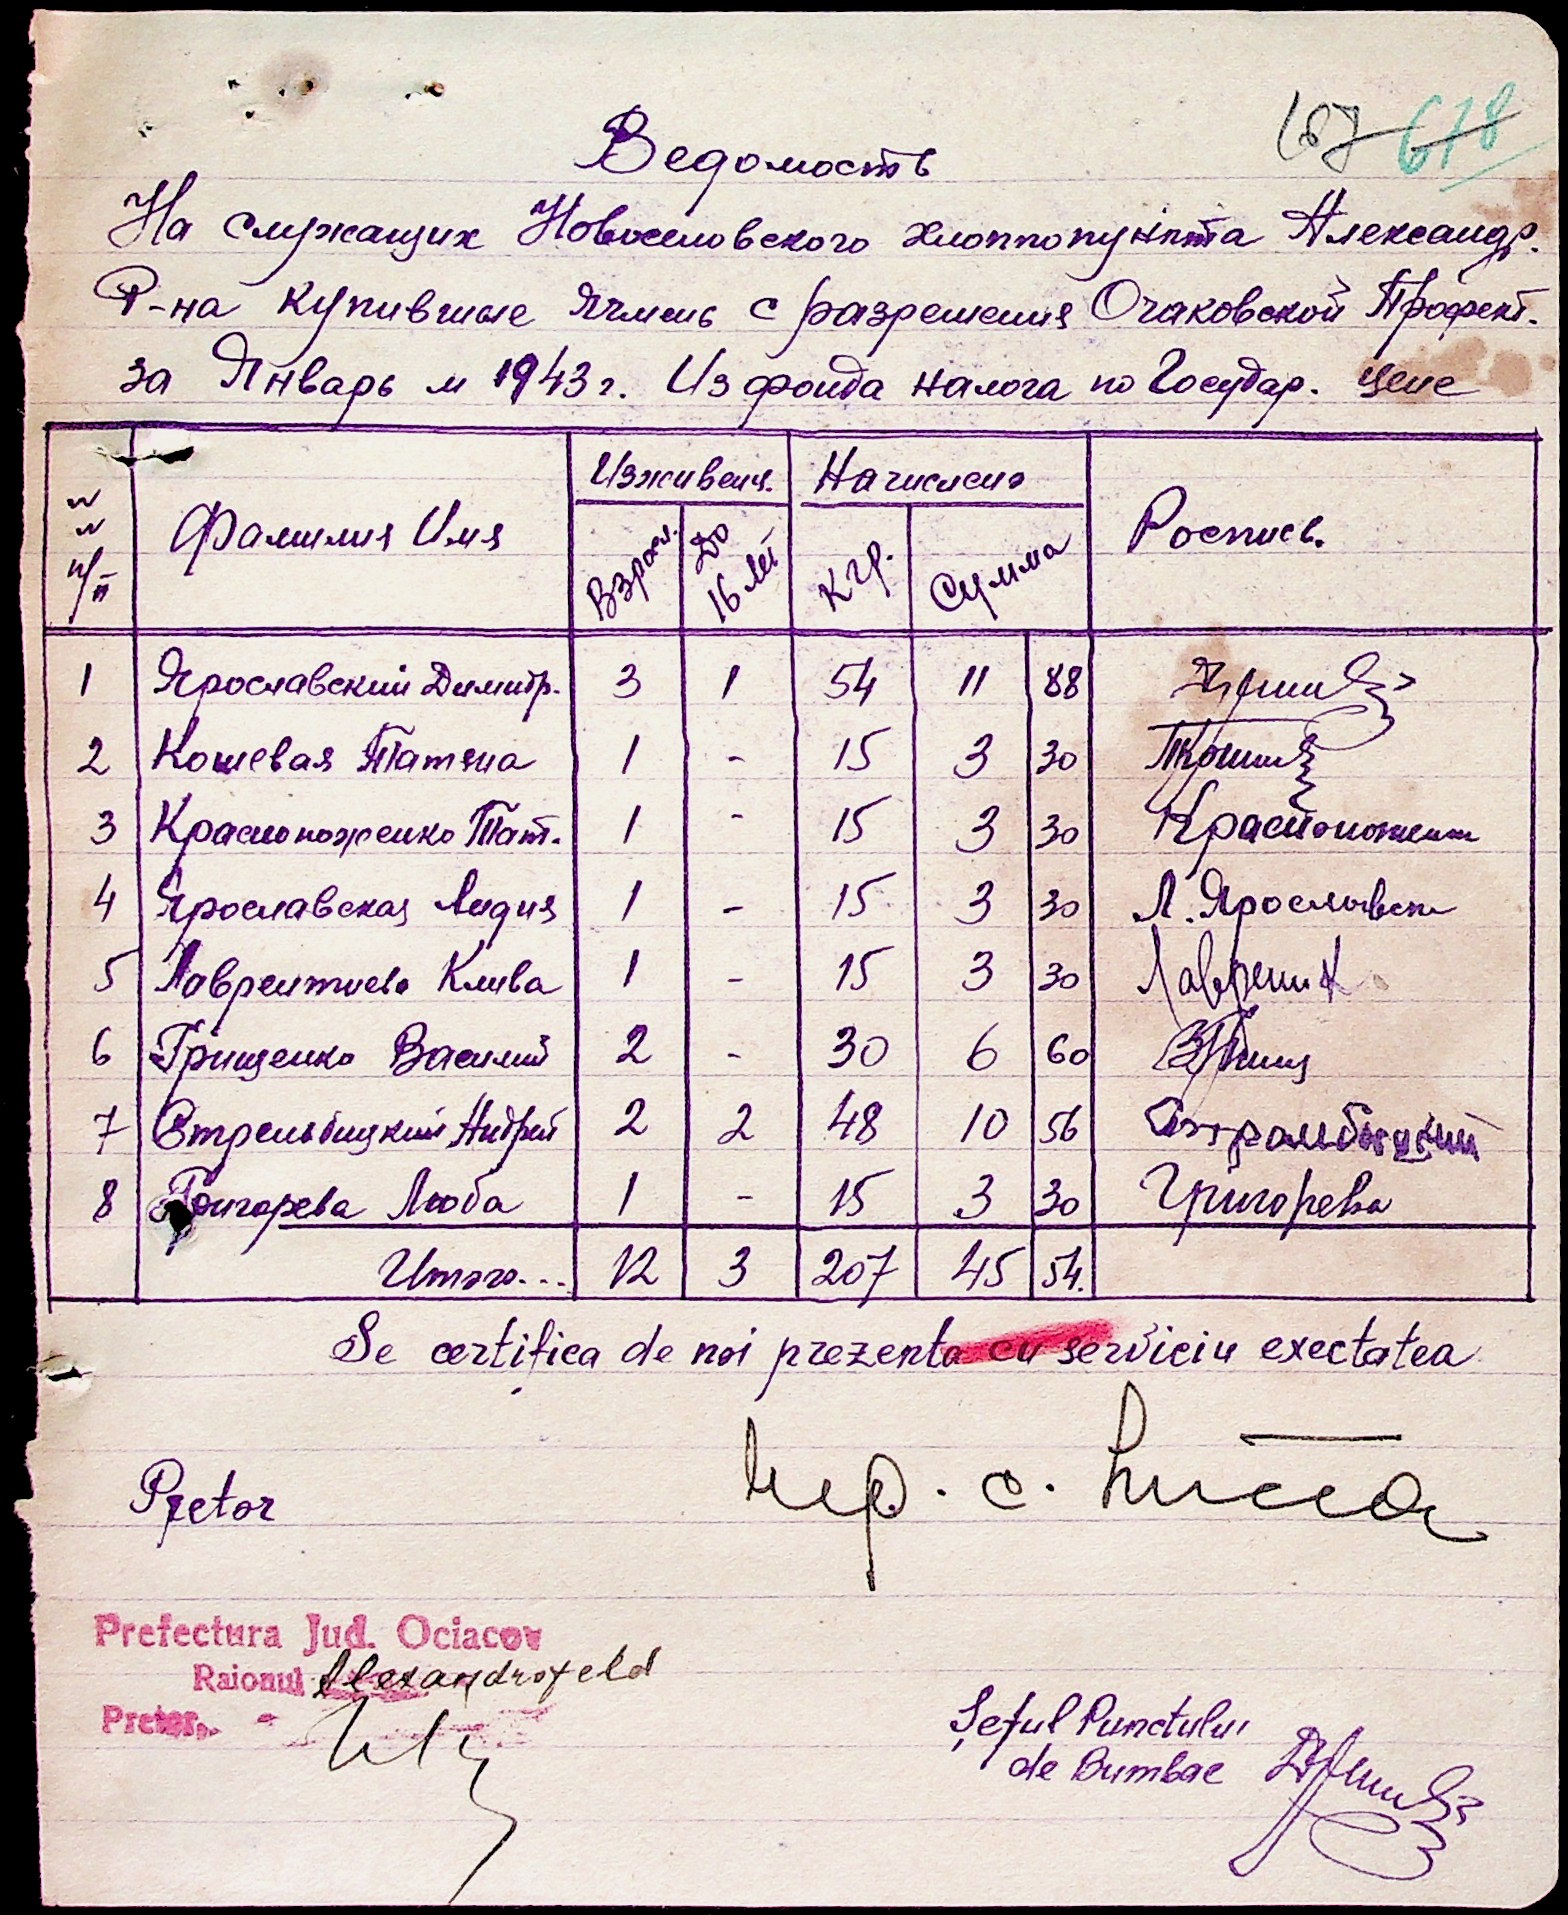 678
Ведомость
На служащих Новоселовского хлоппопункта Александр.
Р-на купившие ячмень с разрешения Очаковской Профект.
за Январь м 1943 г. Из фонда налога по Государ. цене
№ № п/п | Фамилия Имя | Изживен. | Начислено | Роспись.
Взросл. | До 16 лет | Кгр. | Сумма
1 | Ярославский Димитр. | 3 | 1 | 54 | 11 | 88
2 | Кошевая Татяна | 1 | - | 15 | 3 | 30
3 | Красноноженко Тат. | 1 | - | 15 | 3 | 30 | Красноноженк
4 | Ярославская Лидия | 1 | - | 15 | 3 | 30 | Л. Ярославск
5 | Лаврентиева Клива | 1 | - | 15 | 3 | 30
6 | Грищенко Василий | 2 | - | 30 | 6 | 60
7 | Стрельбицкий Андрей | 2 | 2 | 48 | 10 | 56
8 | Григорева Люба | 1 | - | 15 | 3 | 30 | Григорева
Итого... | 12 | 3 | 207 | 45 | 54.
Se certifica de noi prezenta cu serviciu exectatea
Pretor
Prefectura Jud. Ociacov
Raionul Alexandrofeld
Pretor,
Șeful Punctului
de Bumbac